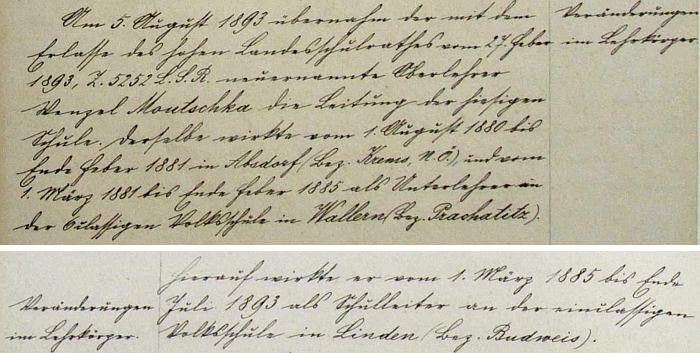 Am 5. August 1893 übernahm der mit dem
Erlasse des hohen Landesschulrathes vom 27. Feber
1893, Z. 5252 L. S. R. neuernannte Oberlehrer
Wenzel Moutschka die Leitung der hiesigen
Schule. Derselbe wirkte vom 1. August 1880 bis
Ende Feber 1881 in Absdorf (Bez. Krems, N. Ö.), und vom
1. März 1881 bis Ende Feber 1885 als Unterlehrer an
der 6classigen Volksschule in Wallern (Bez. Prachatitz).
Veränderungen
im Lehrkörper
Hierauf wirkte er vom 1. März 1885 bis Ende
Juli 1893 als Schulleiter an der einclassigen
Volksschule in Linden (Bez. Budweis).
Veränderungen
im Lehrkörper.